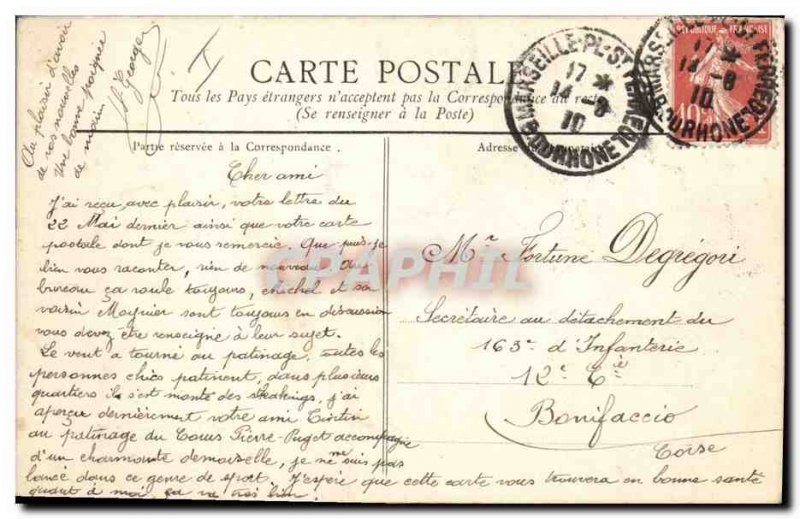 Au plaisir d'avoir
de vos nouvelles
Une bonne poignée
de main
Georges
CARTE POSTALE
Tous les Pays étrangers n'acceptent pas la Correspondance au recto
(Se renseigner à la Poste)
MARSEILLE-PL-ST FERREOL
17 *
14 - 8
10
BOUCHES DU RHONE
REPUBLIQUE FRANÇAISE
10
MARSEILLE FERREOL
17 *
14 - 8
10
RHONE
Partie réservée à la Correspondance.
Adresse du
Cher ami
J'ai reçu avec plaisir, votre lettre du
22 Mai dernier ainsi que votre carte
postale dont je vous remercie. Que puis-je
bien vous raconter, rien de nouveau. Au
bureau ça roule toujours, Michel et son
voisin Maynier sont toujours en discussion
vous devez être renseigné à leur sujet.
Le vent a tourné au patinage, toutes les
personnes chics patinent, dans plusieurs
quartiers ils s'est monté des skakings, j'ai
aperçu dernièrement votre ami Tintin
au patinage du Cours Pierre-Puget accompagné
d'un charmante demoiselle, je ne me suis pas
lancé dans ce genre de sport. J'espère que cette carte vous trouvera en bonne santé
quant à moi, ça va très bien.
CPAPHIL
Mr Fortune Degrégori
Secrétaire au détachement du
163e d'Infanterie
12e Cie
Bonifaccio
Corse